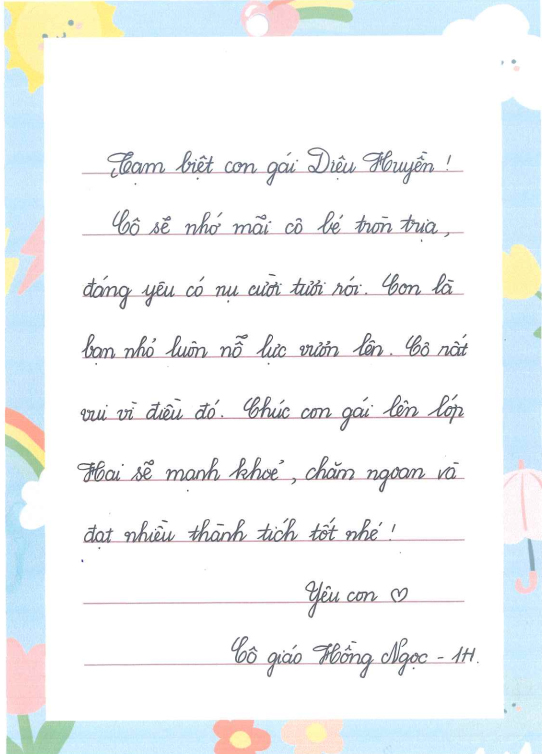 Tạm biệt con gái Diệu Huyền !
Cô sẽ nhớ mãi cô bé tròn trịa,
đáng yêu có nụ cười tươi rói. Con là
bạn nhỏ luôn nỗ lực vươn lên. Cô rất
vui vì điều đó. Chúc con gái lên lớp
Hai sẽ mạnh khoẻ, chăm ngoan và
đạt nhiều thành tích tốt nhé !
Yêu con ♡
Cô giáo Hồng Ngọc - 1H.